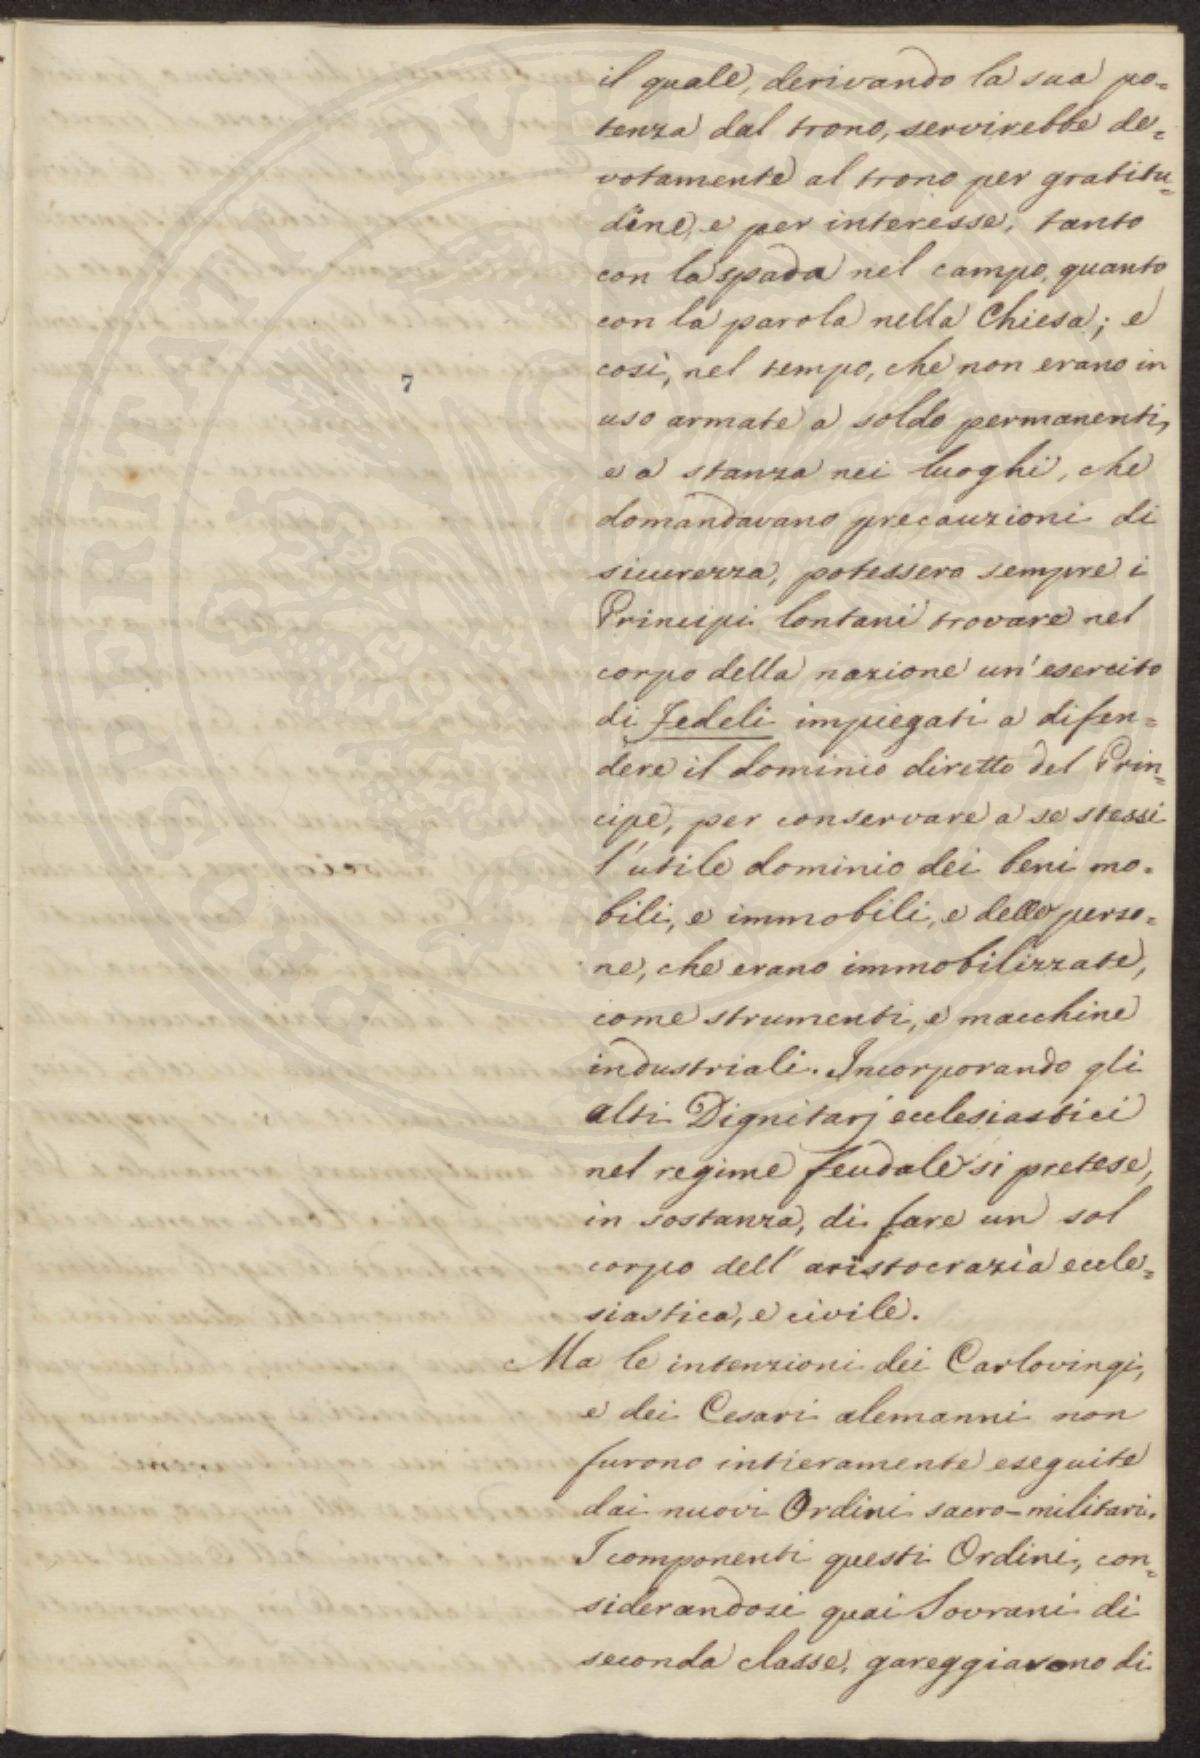 il quale, derivando la sua po=
tenza dal trono, servirebbe de=
votamente al trono per gratitu=
dine, e per interesse, tanto
con la spada nel campo, quanto
con la parola nella Chiesa; e
così, nel tempo, che non erano in
uso armate a soldo permanenti,
e a stanza nei luoghi, che
domandavano precauzioni di
sicurezza, potessero sempre i
Principi lontani trovare nel
corpo della nazione un'esercito
di Fedeli impiegati a difen=
dere il dominio diretto del Prin=
cipe, per conservare a se stessi
l'utile dominio dei beni mo=
bili, e immobili, e delle perso=
ne, che erano immobilizzate,
come strumenti, e macchine
industriali. Incorporando gli
alti Dignitarj ecclesiastici
nel regime feudale si pretese,
in sostanza, di fare un sol
corpo dell'aristocrazìa eccle=
siastica, e civile.
Ma le intenzioni dei Carlovingi,
e dei Cesari alemanni non
furono intieramente eseguite
dai nuovi Ordini sacro-militari.
I componenti questi Ordini, con=
siderandosi quai Sovrani di
seconda classe, gareggiavano di
7
PROSPERITATI PVBLICAE